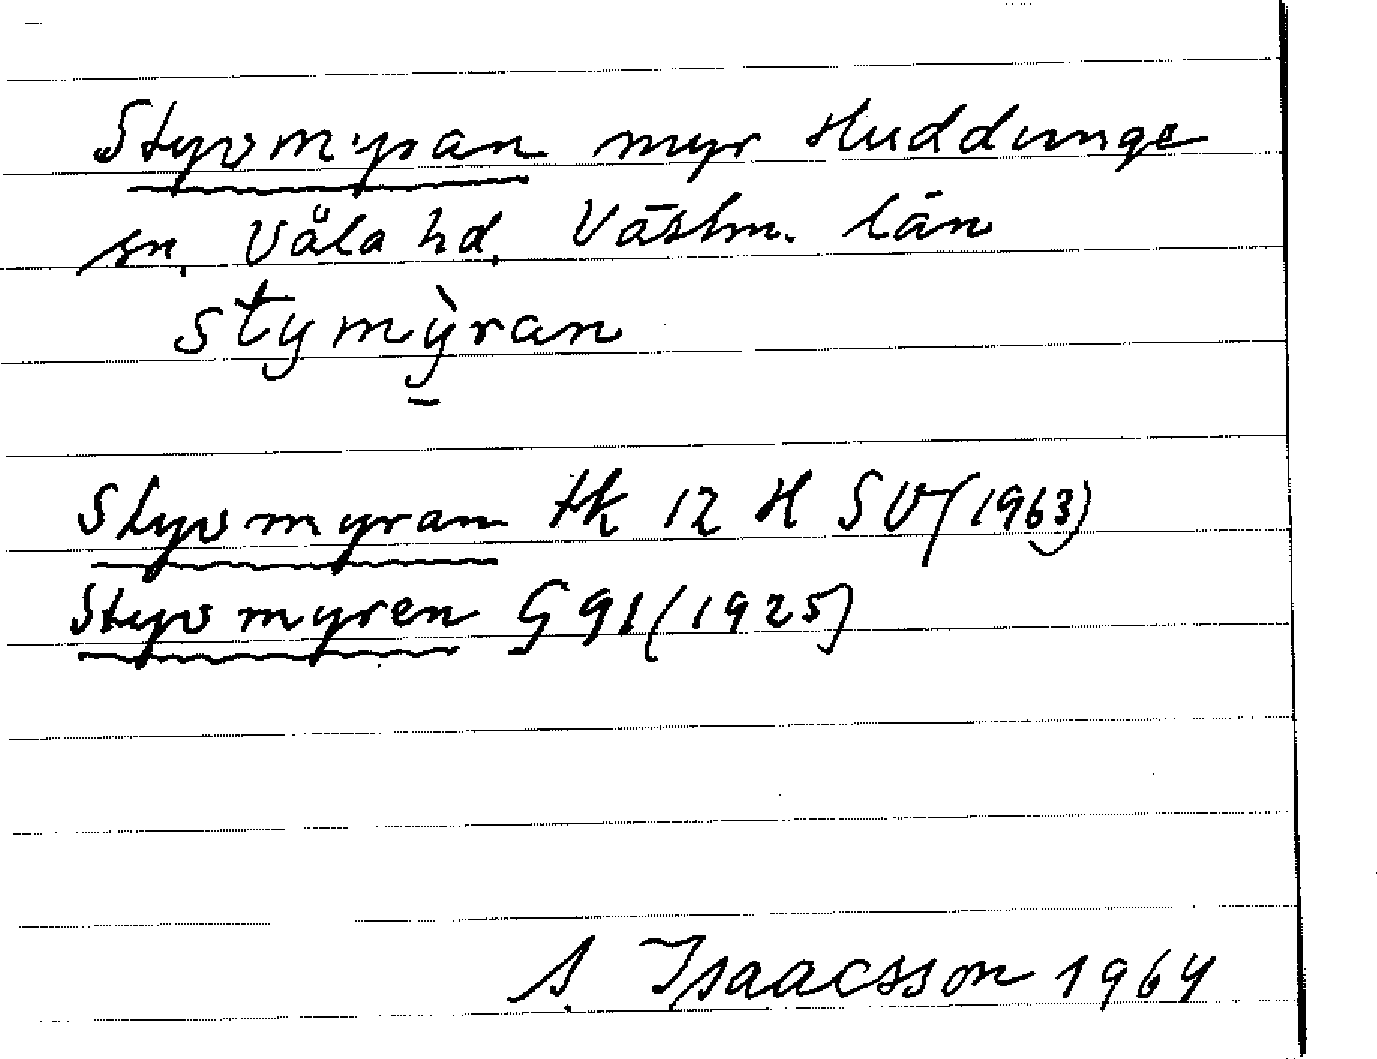 Styvmyran myr Huddunge
sn, Våla hd, Västm. län
stymỳran
Styvmyran tk 12 H SV (1963)
Styvmyren G 91 (1925)
S. Isaacsson 1964